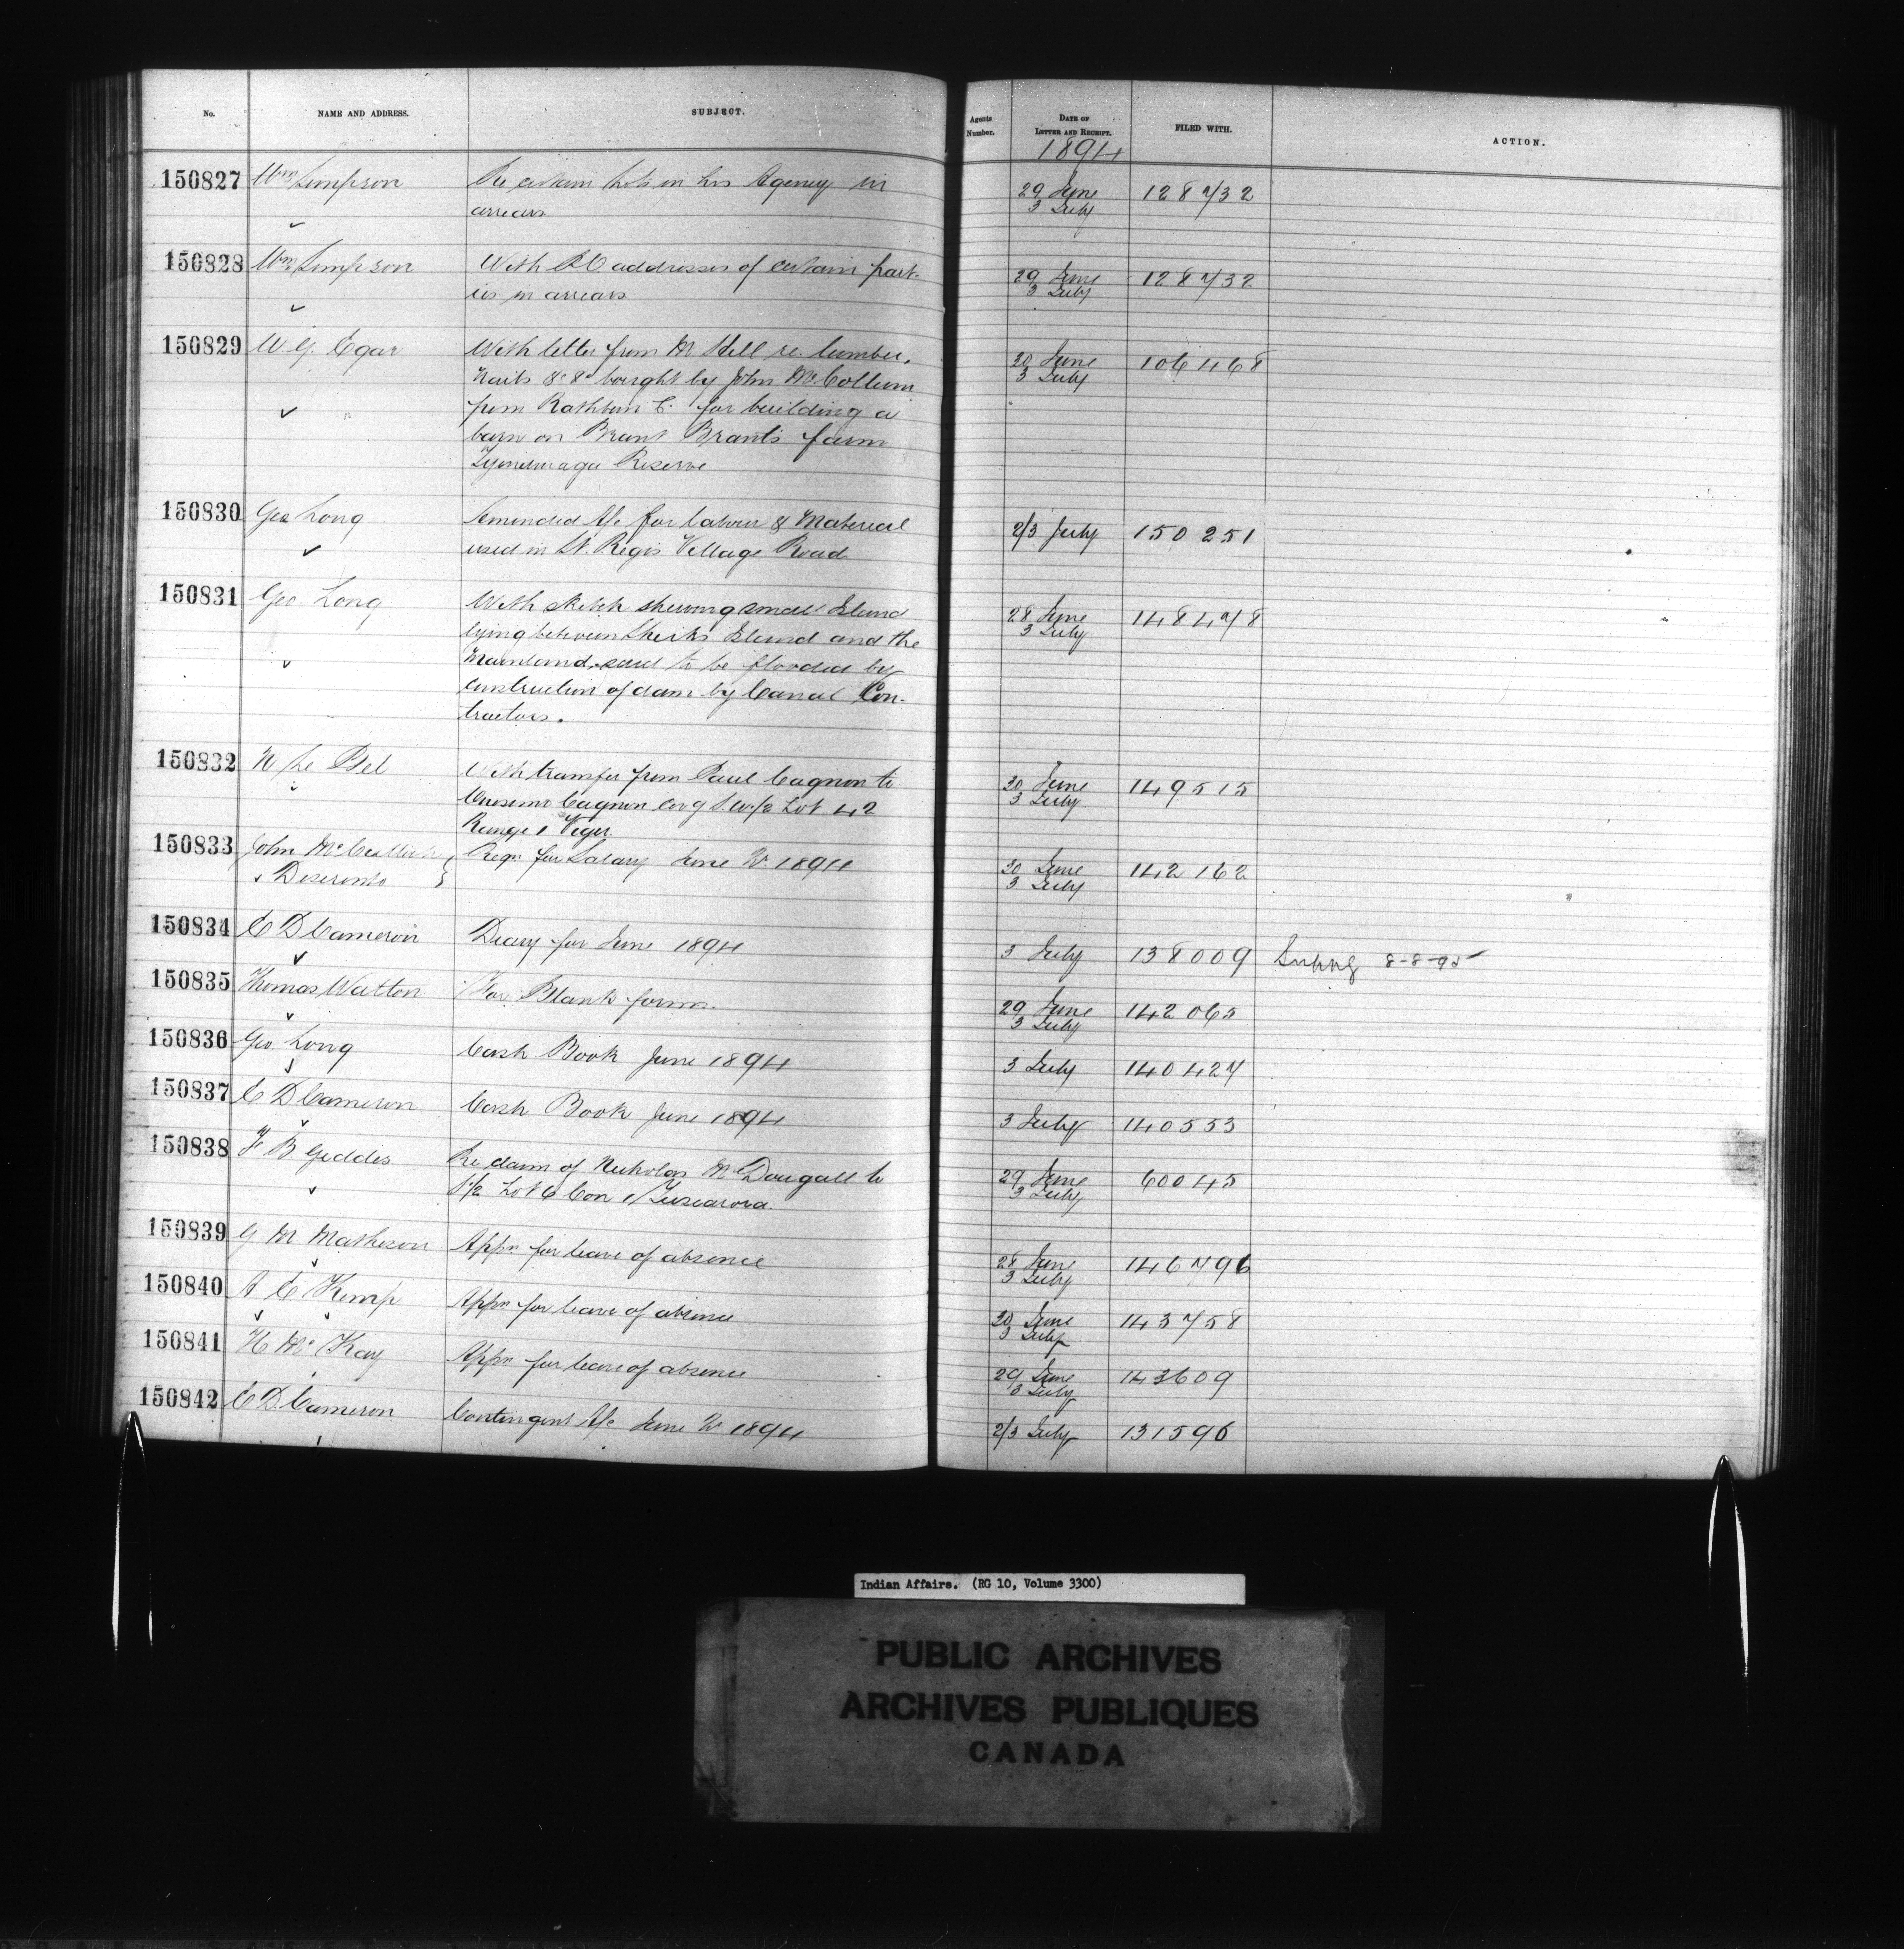 No. NAME AND ADDRESS. SUBJECT. Agents Number. DATE OF LETTER AND RECEIPT. FILED WITH. ACTION.
1894
150827 Wm Simpson Re certain Lots in his Agency in 29 June 128732
arrears 3 July
150828 Wm Simpson With P.O addresses of certain part- 29 June 128732
ies in arrears 3 July
150829 W. G. Egar With letter from M Hill re lumber, 30 June 106468
Nails &c &c bought by John McCollum 3 July
from Rathbun C. for building a
barn on Brant Brant's farm
Tyendinaga Reserve
150830 Geo Long Amended A/c for labour & Material 2/3 July 150251
used in St. Regis Village Road
150831 Geo. Long With sketch shewing small Island 28 June 148478
lying between Sheiks Island and the 3 July
Mainland, said to be flooded by
construction of dam by Canal Con-
tractors.
150832 N Le Bel With transfer from Paul Gagnon to 30 June 149515
Onesime Gagnon covg S.W./2 Lot 42 3 July
Range 1 Viger
150833 John McCullough Reqn for Salary June Qr 1894 30 June 142162
Deseronto 3 July
150834 C D Cameron Diary for June 1894 3 July 138009 8-8-95
150835 Thomas Walton For Blank forms. 29 June 142065
3 July
150836 Geo. Long Cash Book June 1894 3 July 140427
150837 C D Cameron Cash Book June 1894 3 July 140553
150838 F B Geddes Re claim of Nicholas McDougall to 29 June 60045
S1/2 Lot 6 Con 1 Tuscarora. 3 July
150839 G M Matheson Appn for leave of absence 28 June 146796
3 July
150840 A E Kemp Appn for leave of absence 30 June 143758
3 July
150841 H McKay Appn for leave of absence 29 June 143609
3 July
150842 C D. Cameron Contingent A/c June Qr 1894 2/3 July 131596
Indian Affairs. (RG 10, Volume 3300)
PUBLIC ARCHIVES
ARCHIVES PUBLIQUES
CANADA